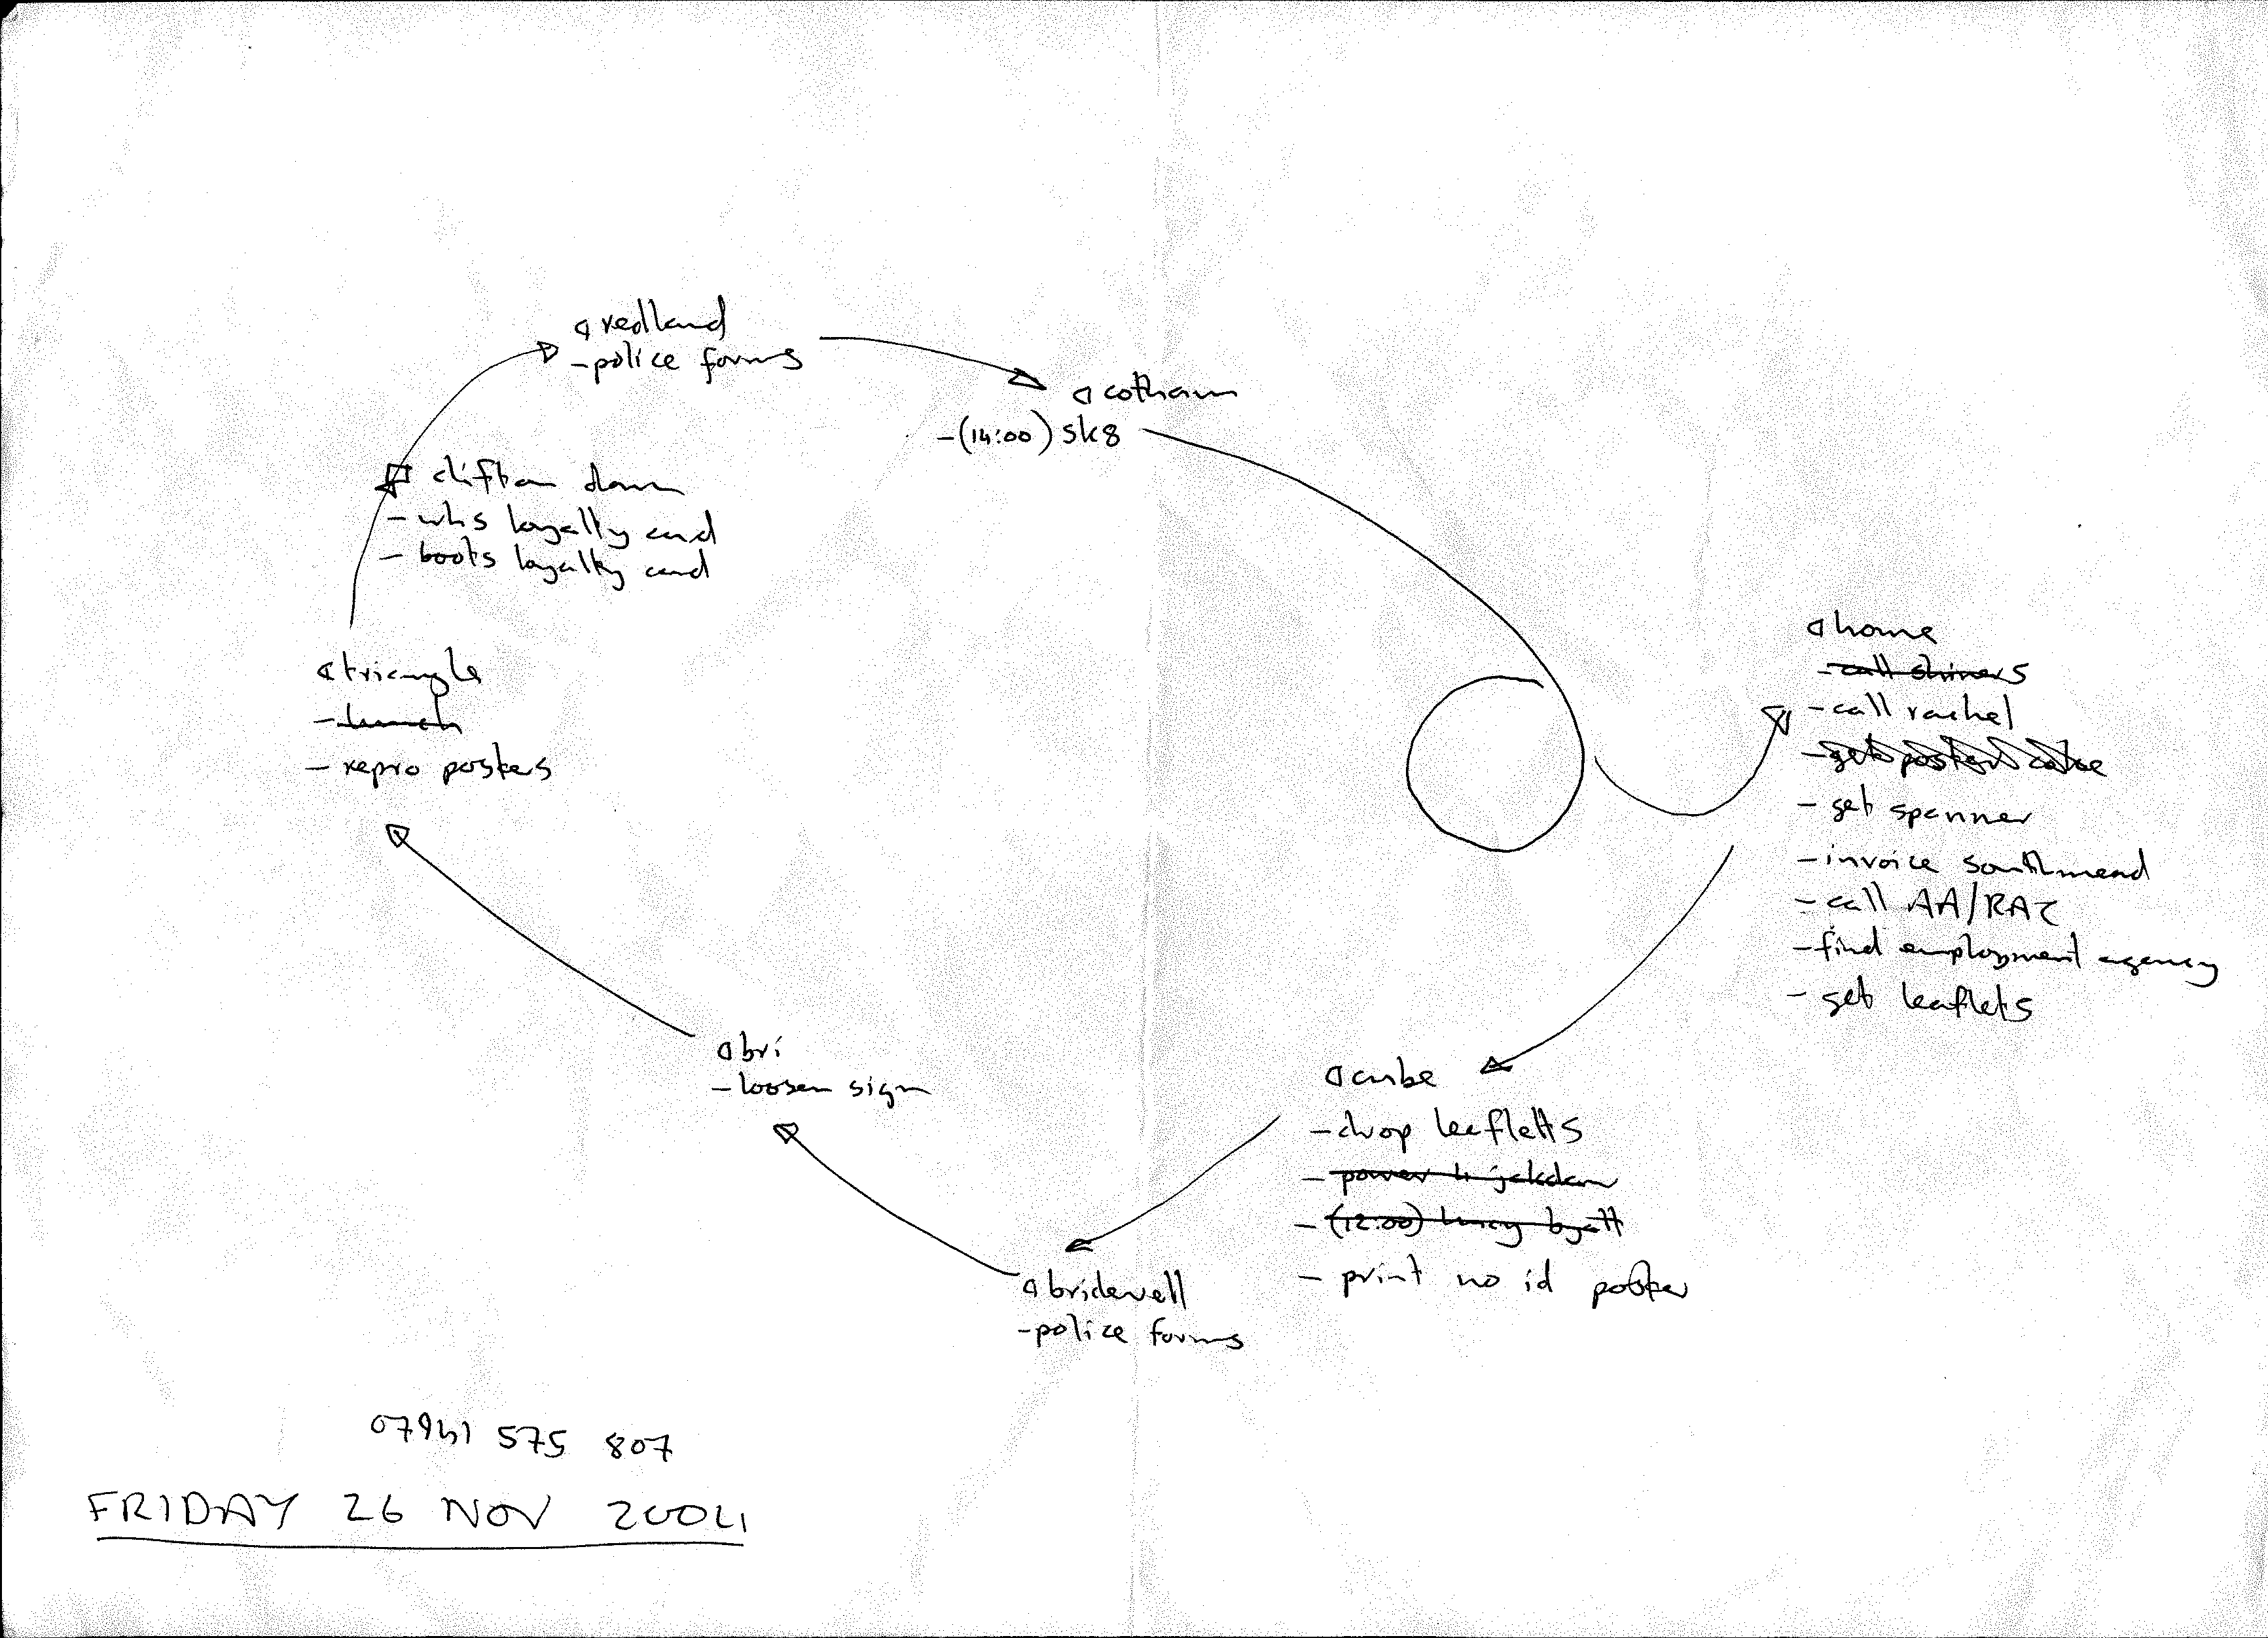 redland
- police forms
cotham
- (14:00) sk8
clifton down
- whs loyalty card
- boots loyalty card
home
- call shiners
- call rachel
- get spanner
- invoice southmead
- call AA/RAC
- find employment agency
- get leaflets
triangle
- lunch
- repro posters
bri
- loosen sign
cube
- drop leafletts
- power
- (12:00) lucy byatt
- print no id poster
bridewell
- police forms
07941 575 807
FRIDAY 26 NOV 2004